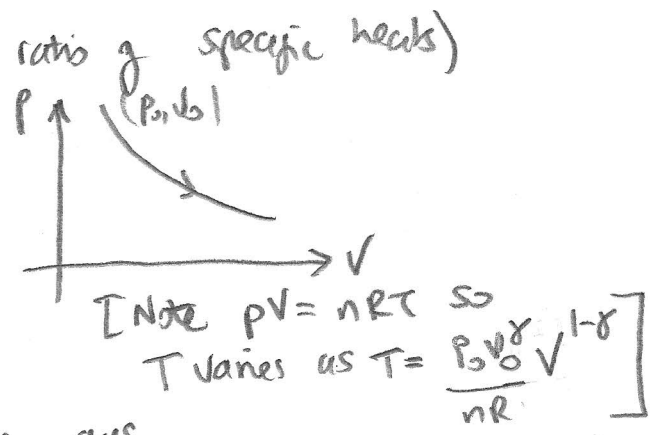 ratio of specific heats)
P (P₀,V₀)
V
[Note pV = nRT so
T varies as T = P₀V₀^γ/nR V^(1-γ)]